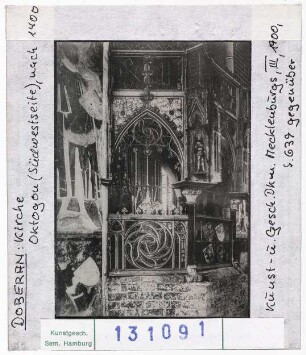 DOBERAN: Kirche
Oktogon (Südwestseite), nach 1400
Kunst- u. Gesch. Dkm. Mecklenburgs, III, 1900,
S. 639 gegenüber
Kunstgesch.
Sem. Hamburg
131091